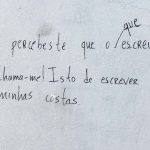 que
percebeste que o escreve
chama-me! Isto de escrever
minhas costas.